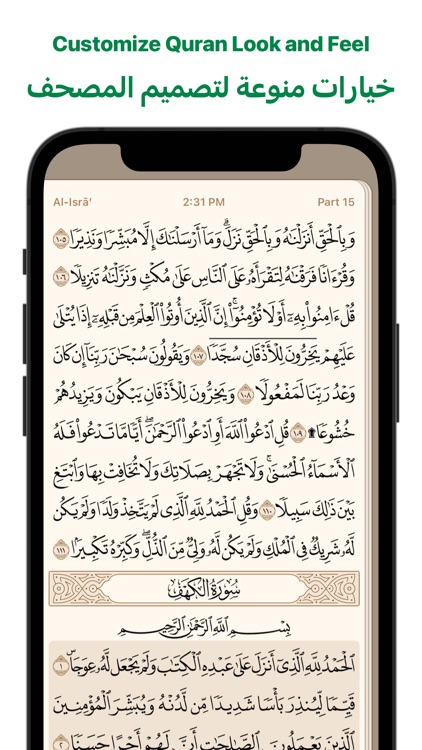 Customize Quran Look and Feel
خيارات منوعة لتصميم المصحف
Al-Isrā' 2:31 PM Part 15
وَبِٱلْحَقِّ أَنزَلْنَٰهُ وَبِٱلْحَقِّ نَزَلَ ۗ وَمَآ أَرْسَلْنَٰكَ إِلَّا مُبَشِّرًا وَنَذِيرًا ١٠٥
وَقُرْءَانًا فَرَقْنَٰهُ لِتَقْرَأَهُۥ عَلَى ٱلنَّاسِ عَلَىٰ مُكْثٍ وَنَزَّلْنَٰهُ تَنزِيلًا ١٠٦
قُلْ ءَامِنُوا۟ بِهِۦٓ أَوْ لَا تُؤْمِنُوٓا۟ ۚ إِنَّ ٱلَّذِينَ أُوتُوا۟ ٱلْعِلْمَ مِن قَبْلِهِۦٓ إِذَا يُتْلَىٰ
عَلَيْهِمْ يَخِرُّونَ لِلْأَذْقَانِ سُجَّدًا ١٠٧ وَيَقُولُونَ سُبْحَٰنَ رَبِّنَآ إِن كَانَ
وَعْدُ رَبِّنَا لَمَفْعُولًا ١٠٨ وَيَخِرُّونَ لِلْأَذْقَانِ يَبْكُونَ وَيَزِيدُهُمْ
خُشُوعًا ۩ ١٠٩ قُلِ ٱدْعُوا۟ ٱللَّهَ أَوِ ٱدْعُوا۟ ٱلرَّحْمَٰنَ ۖ أَيًّا مَّا تَدْعُوا۟ فَلَهُ
ٱلْأَسْمَآءُ ٱلْحُسْنَىٰ ۚ وَلَا تَجْهَرْ بِصَلَاتِكَ وَلَا تُخَافِتْ بِهَا وَٱبْتَغِ
بَيْنَ ذَٰلِكَ سَبِيلًا ١١٠ وَقُلِ ٱلْحَمْدُ لِلَّهِ ٱلَّذِى لَمْ يَتَّخِذْ وَلَدًا وَلَمْ يَكُن
لَّهُۥ شَرِيكٌ فِى ٱلْمُلْكِ وَلَمْ يَكُن لَّهُۥ وَلِىٌّ مِّنَ ٱلذُّلِّ ۖ وَكَبِّرْهُ تَكْبِيرًۢا ١١١
سُورَةُ الكَهْفِ
بِسْمِ ٱللَّهِ ٱلرَّحْمَٰنِ ٱلرَّحِيمِ
ٱلْحَمْدُ لِلَّهِ ٱلَّذِىٓ أَنزَلَ عَلَىٰ عَبْدِهِ ٱلْكِتَٰبَ وَلَمْ يَجْعَل لَّهُۥ عِوَجَاۜ ١
قَيِّمًا لِّيُنذِرَ بَأْسًا شَدِيدًا مِّن لَّدُنْهُ وَيُبَشِّرَ ٱلْمُؤْمِنِينَ
ٱلَّذِينَ يَعْمَلُونَ ٱلصَّٰلِحَٰتِ أَنَّ لَهُمْ أَجْرًا حَسَنًا ٢